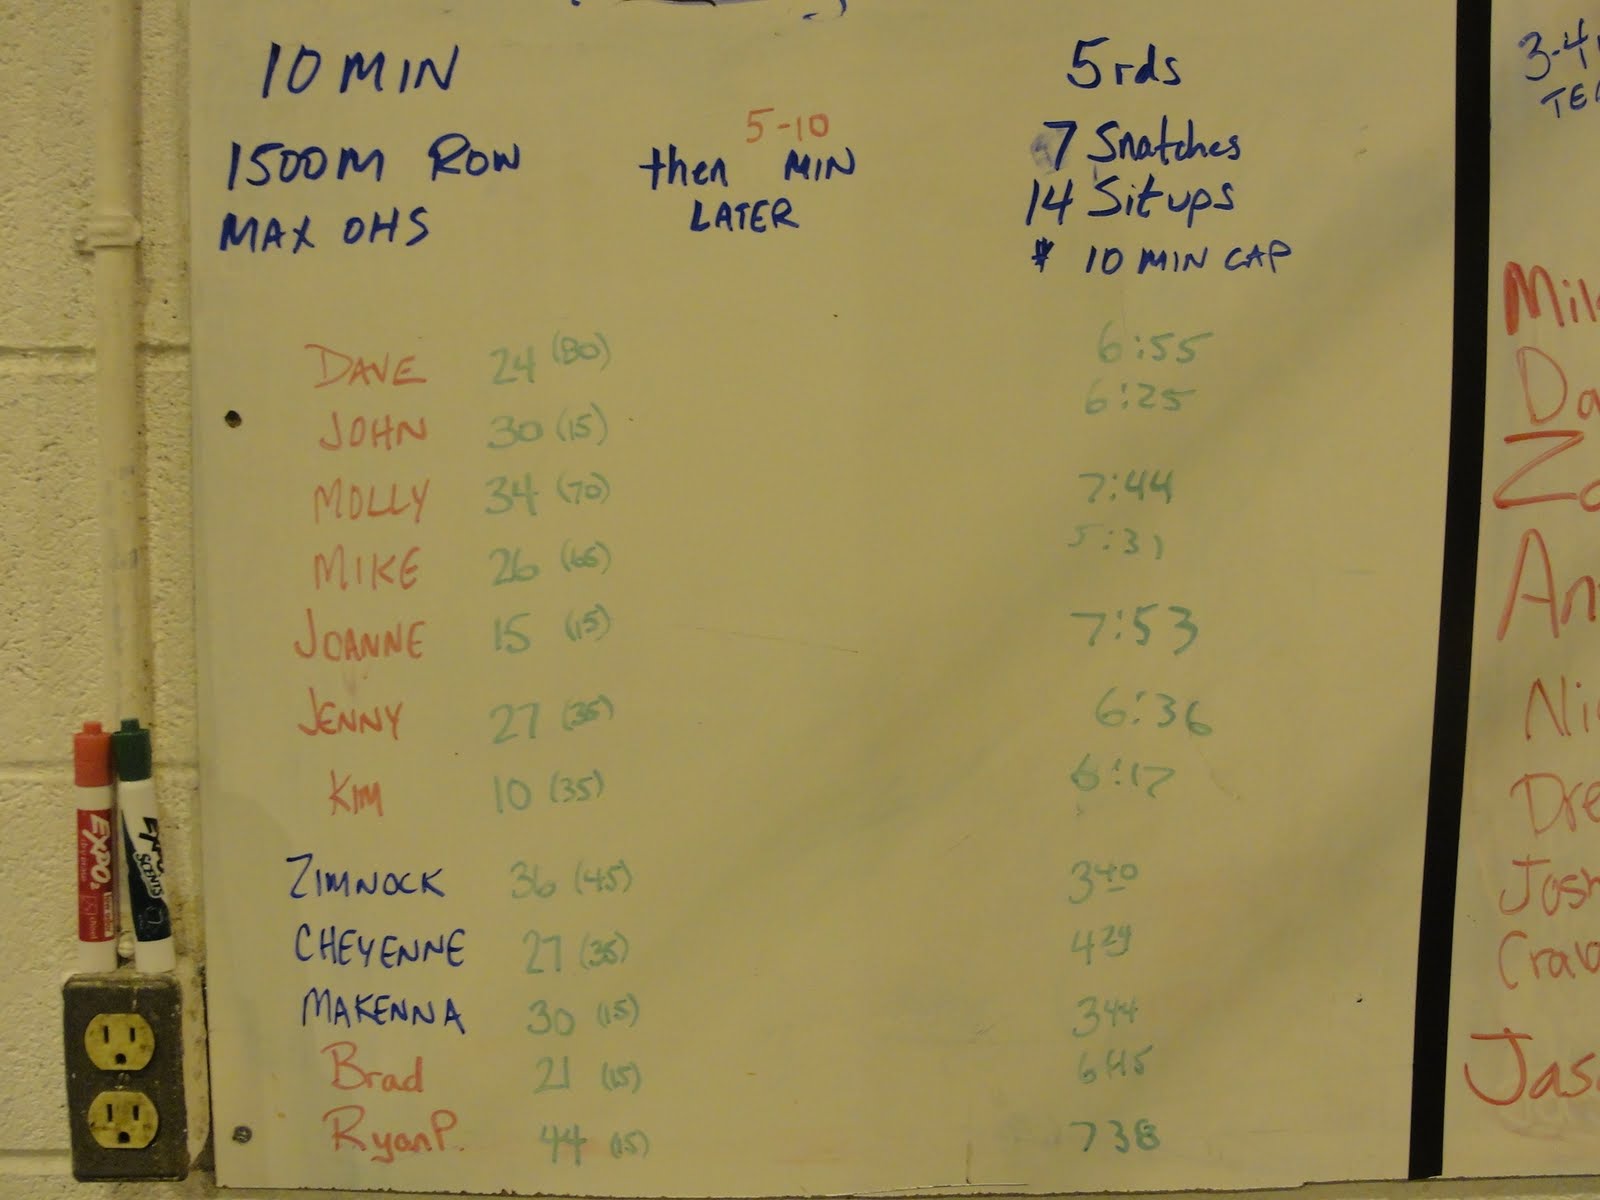 10 MIN
1500M ROW
MAX OHS
5-10
then MIN
LATER
5 rds
7 Snatches
14 Situps
* 10 MIN CAP
DAVE 24 (80) 6:55
JOHN 30 (15) 6:25
MOLLY 34 (70) 7:44
MIKE 26 (65) 5:31
JOANNE 15 (15) 7:53
JENNY 27 (35) 6:36
KIM 10 (35) 6:17
ZIMNOCK 36 (45) 340
CHEYENNE 27 (35) 429
MAKENNA 30 (15) 344
Brad 21 (15) 6:45
Ryan P. 44 (15) 738
EXPO
SCENTS
3-4
TE
Mik
Da
Zo
An
Ni
Dre
Josh
Crai
Jas